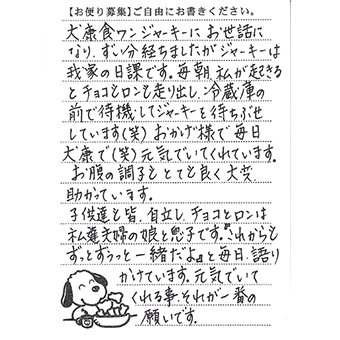 【お便り募集】ご自由にお書きください。
犬康食ワンジャーキーにお世話に
なり、ずい分経ちましたがジャーキーは
我家の日課です。毎朝、私が起きる
とチョコとロンも走り出し、冷蔵庫の
前で待機してジャーキーを待ちぶせ
しています(笑)おかげ様で毎日
犬康で(笑)元気でいてくれています。
お腹の調子もとても良く大変、
助かっています。
子供達も皆、自立し、チョコとロンは
私達夫婦の娘と息子です。『これからも
ずっとずっっと一緒だよ』と毎日、語り
かけています。元気でいて
くれる事、それが一番の
願いです。